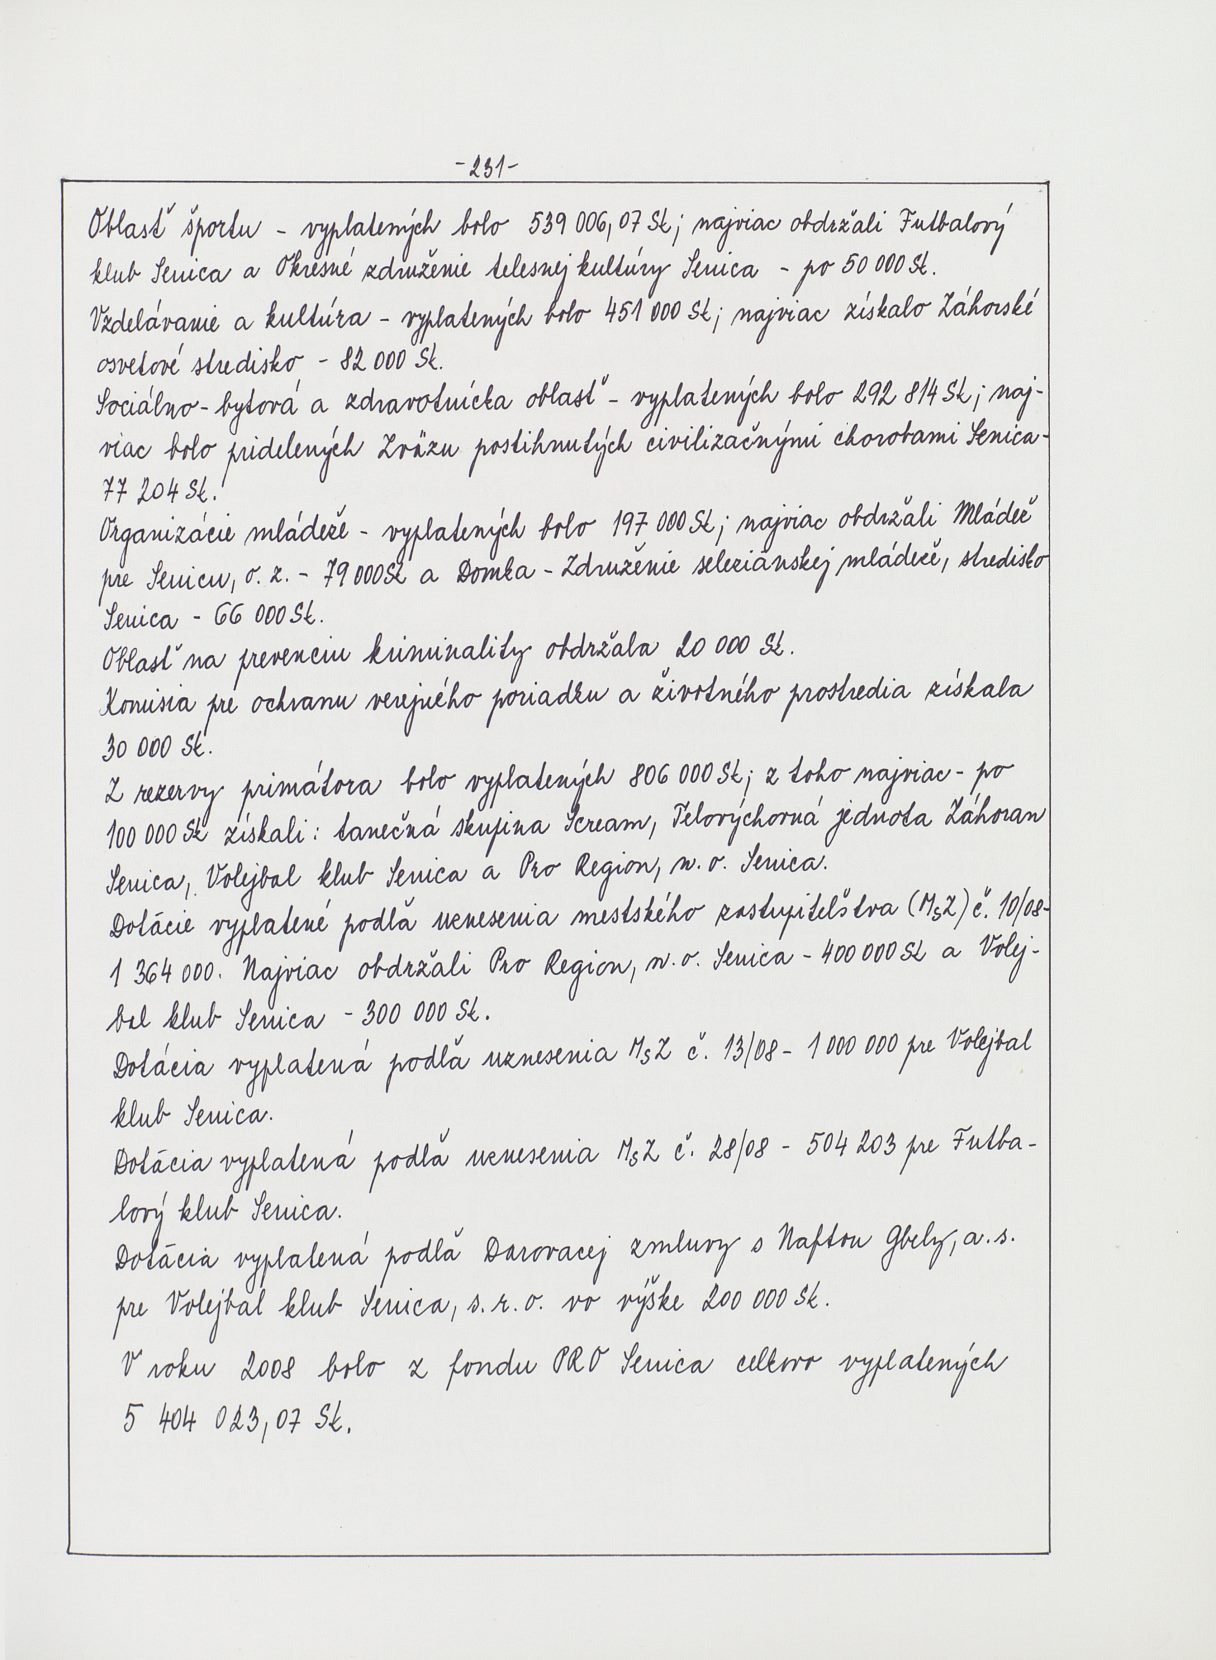 -231-
Oblasť športu - vyplatených bolo 539 006,07 Sk; najviac obdržali Futbalový
klub Senica a Okresné združenie telesnej kultúry Senica - po 50 000 Sk.
Vzdelávanie a kultúra - vyplatených bolo 451 000 Sk; najviac získalo Záhorské
osvetové stredisko - 82 000 Sk.
Sociálno-bytová a zdravotnícka oblasť - vyplatených bolo 292 814 Sk; naj-
viac bolo pridelených Zväzu postihnutých civilizačnými chorobami Senica-
77 204 Sk.
Organizácie mládeže - vyplatených bolo 197 000 Sk; najviac obdržali Mládež
pre Senicu, o. z. - 79 000 Sk a Domka - Združenie saleziánskej mládeže, stredisko
Senica - 66 000 Sk.
Oblasť na prevenciu kriminality obdržala 20 000 Sk.
Komisia pre ochranu verejného poriadku a životného prostredia získala
30 000 Sk.
Z rezervy primátora bolo vyplatených 806 000 Sk; z toho najviac - po
100 000 Sk získali: tanečná skupina Scream, Telovýchovná jednota Záhoran
Senica, Volejbal klub Senica a Pro Region, n. o. Senica.
Dotácie vyplatené podľa uznesenia mestského zastupiteľstva (MsZ) č. 10/08-
1 364 000. Najviac obdržali Pro Region, n. o. Senica - 400 000 Sk a Volej-
bal klub Senica - 300 000 Sk.
Dotácia vyplatená podľa uznesenia MsZ č. 13/08 - 1 000 000 pre Volejbal
klub Senica.
Dotácia vyplatená podľa uznesenia MsZ č. 28/08 - 504 203 pre Futba-
lový klub Senica.
Dotácia vyplatená podľa Darovacej zmluvy s Naftou Gbely, a. s.
pre Volejbal klub Senica, s. r. o. vo výške 200 000 Sk.
V roku 2008 bolo z fondu PRO Senica celkovo vyplatených
5 404 023,07 Sk.